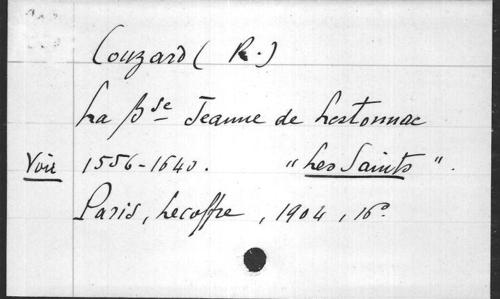 Couzard ( R. )
La Bse Jeanne de Lestonnac
Voir 1556-1640. "Les Saints".
Paris, Lecoffre, 1904, 16º